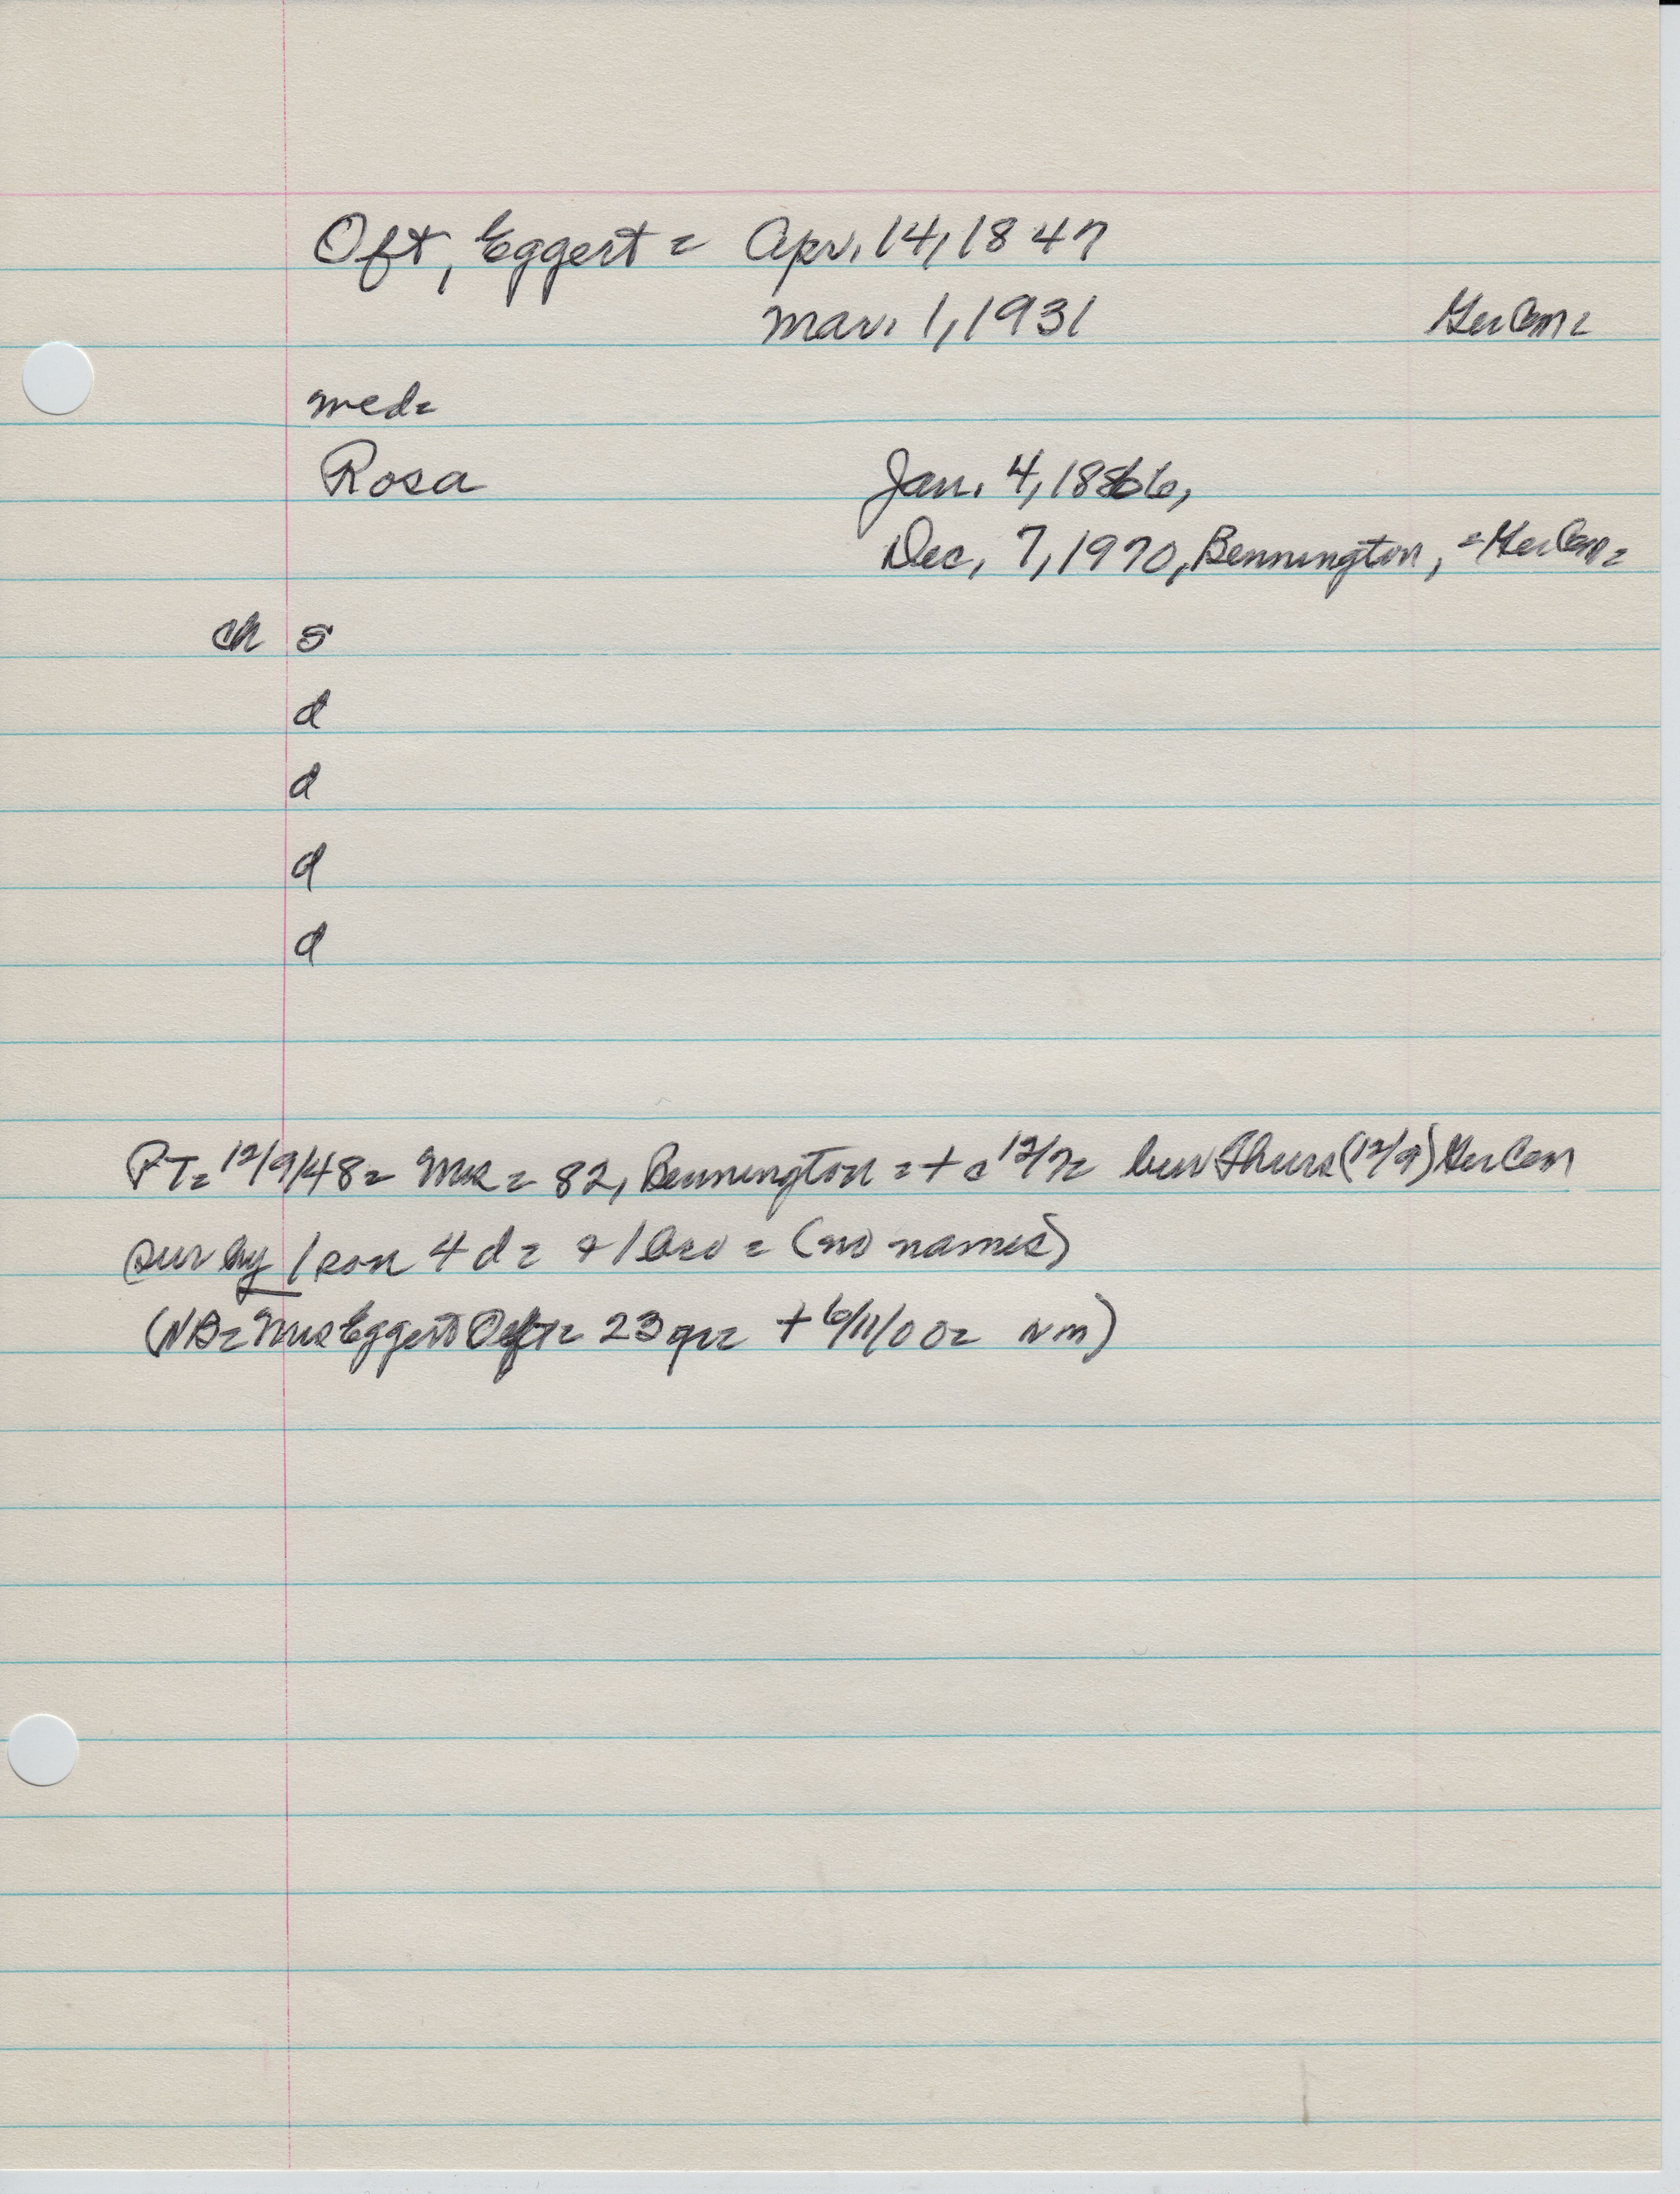 Oft, Eggert = Apr. 14, 1847
Mar. 1, 1931 Ger Cem =
med =
Rosa Jan. 4, 1866,
Dec, 7, 1970, Bennington, = Ger Cem =
ch s
d
d
d
d
PT = 12/9/48 = Mrs = 82, Bennington = + 12/7 = bur Thurs (12/9) Ger Cem
sur by 1 son 4 d = + 1 bro = (no names)
(NB = Mrs Eggert Oft = 23 yr = + 6/11/00 = nm)